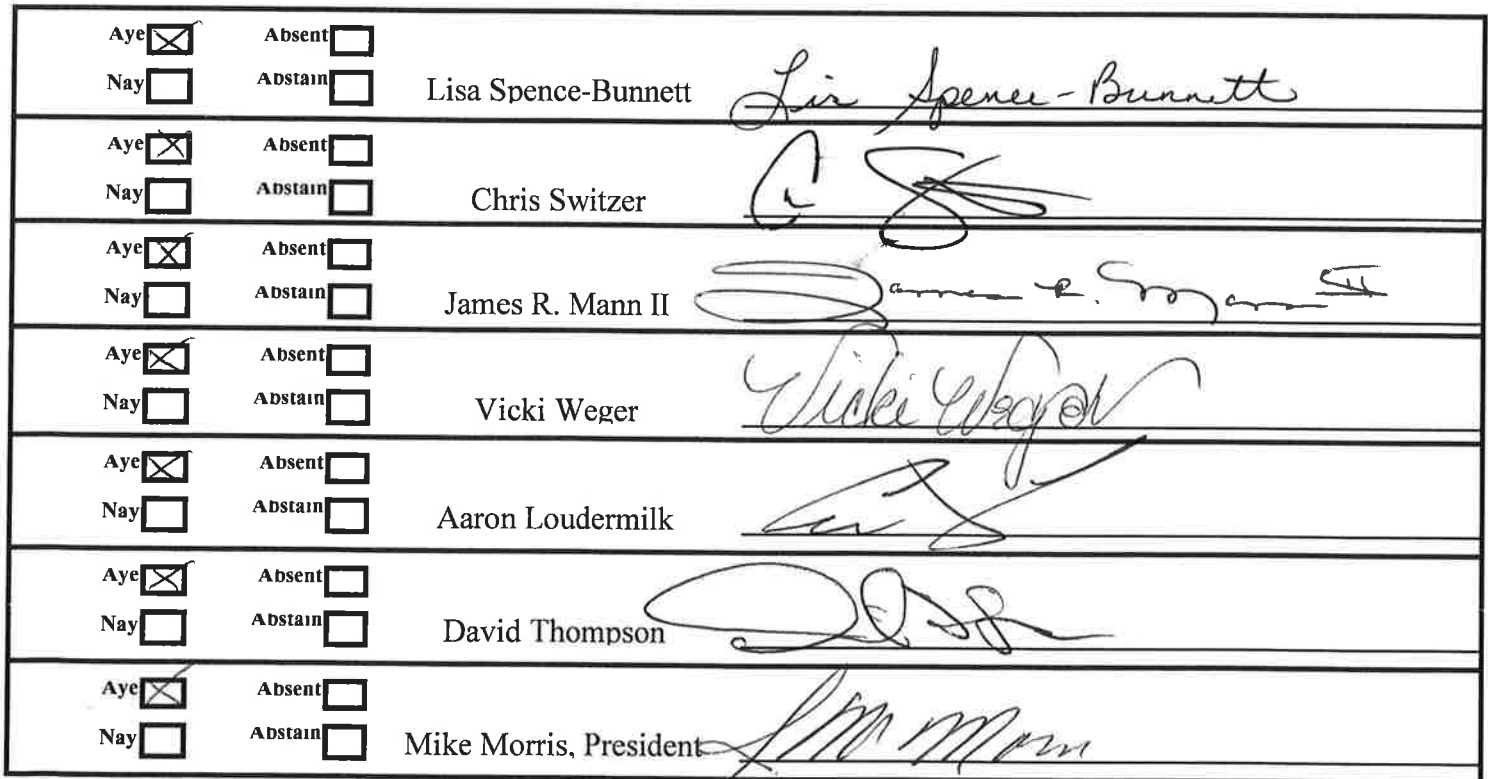 Aye Absent
Nay Abstain Lisa Spence-Bunnett Lisa Spence-Bunnett
Aye Absent
Nay Abstain Chris Switzer
Aye Absent
Nay Abstain James R. Mann II James R. Mann II
Aye Absent
Nay Abstain Vicki Weger Vicki Weger
Aye Absent
Nay Abstain Aaron Loudermilk
Aye Absent
Nay Abstain David Thompson
Aye Absent
Nay Abstain Mike Morris, President